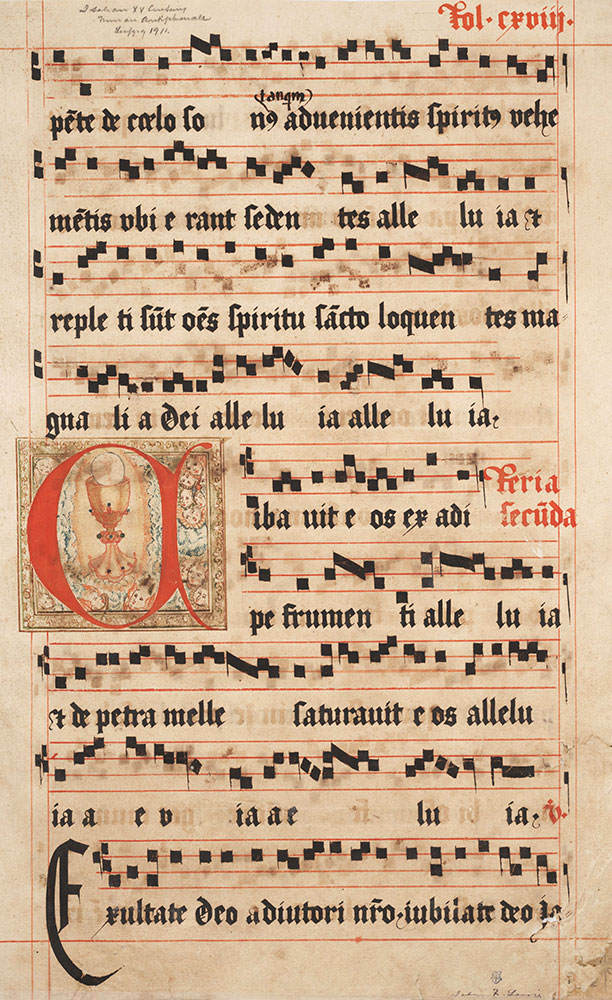 Italian XV Century
from an Antiphonale
Leipzig 1911.
Fol. cxviij.
pēte de cœlo so nꝰ tanqm̄ aduenientis spiritꝰ vehe
mētis vbi e rant seden tes alle lu ia ⁊
reple ti sūt oēs spiritu sācto loquen tes ma
gna li a dei alle lu ia alle lu ia.
Feria
C iba uit e os ex adi secūda
pe frumen ti alle lu ia
⁊ de petra melle saturauit e os allelu
ia a e v ia a e lu ia. ꝟ.
Exultate deo adiutori nr̄o. iubilate deo Ja